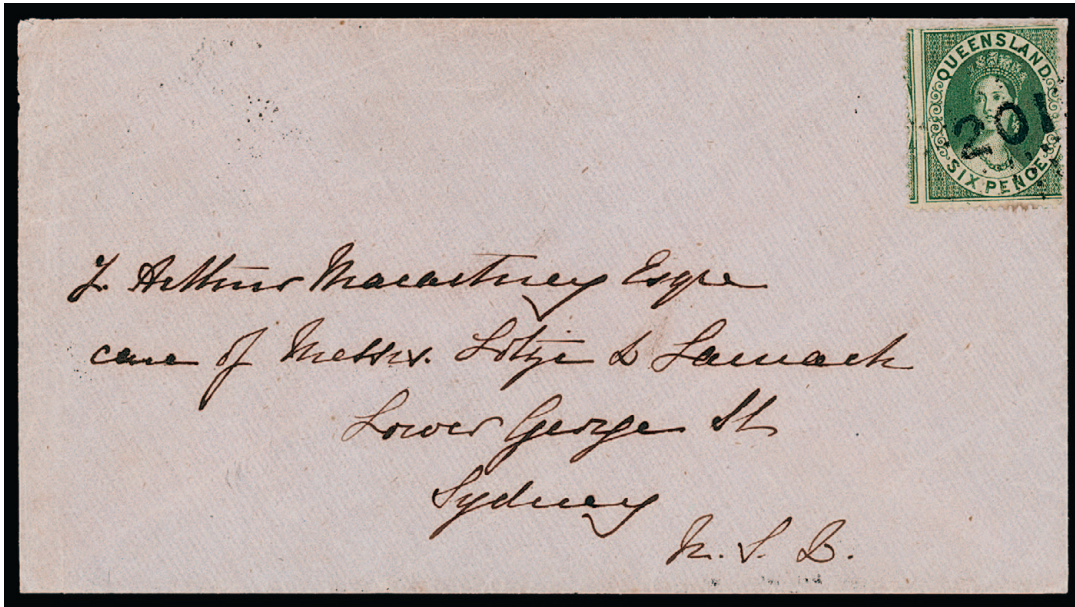 QUEENSLAND
201
SIX PENCE
J. Arthur Macartney Esqre
care of Messrs. Lotze & Larnach
Lower George St
Sydney
N. S. W.